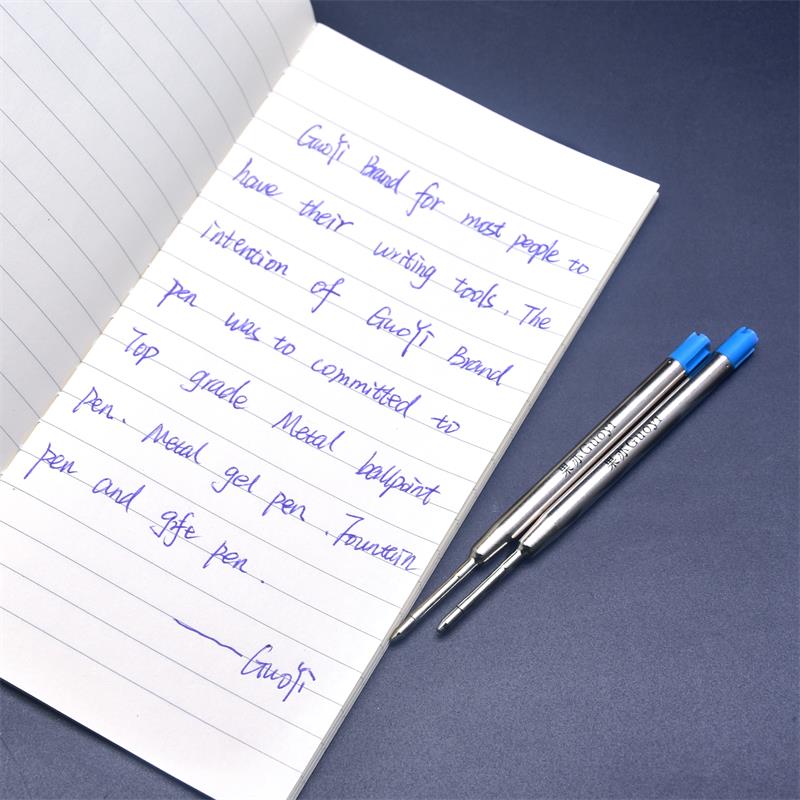 GuoYi Brand for most people to
have their writing tools. The
intention of GuoYi Brand
pen was to committed to
Top grade Metal ballpoint
pen. Metal gel pen. Fountain
pen and gift pen.
—GuoYi
果亦GuoYi
果亦GuoYi